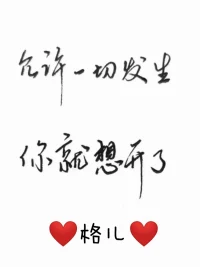 允许一切发生
你就想开了
❤️格儿❤️